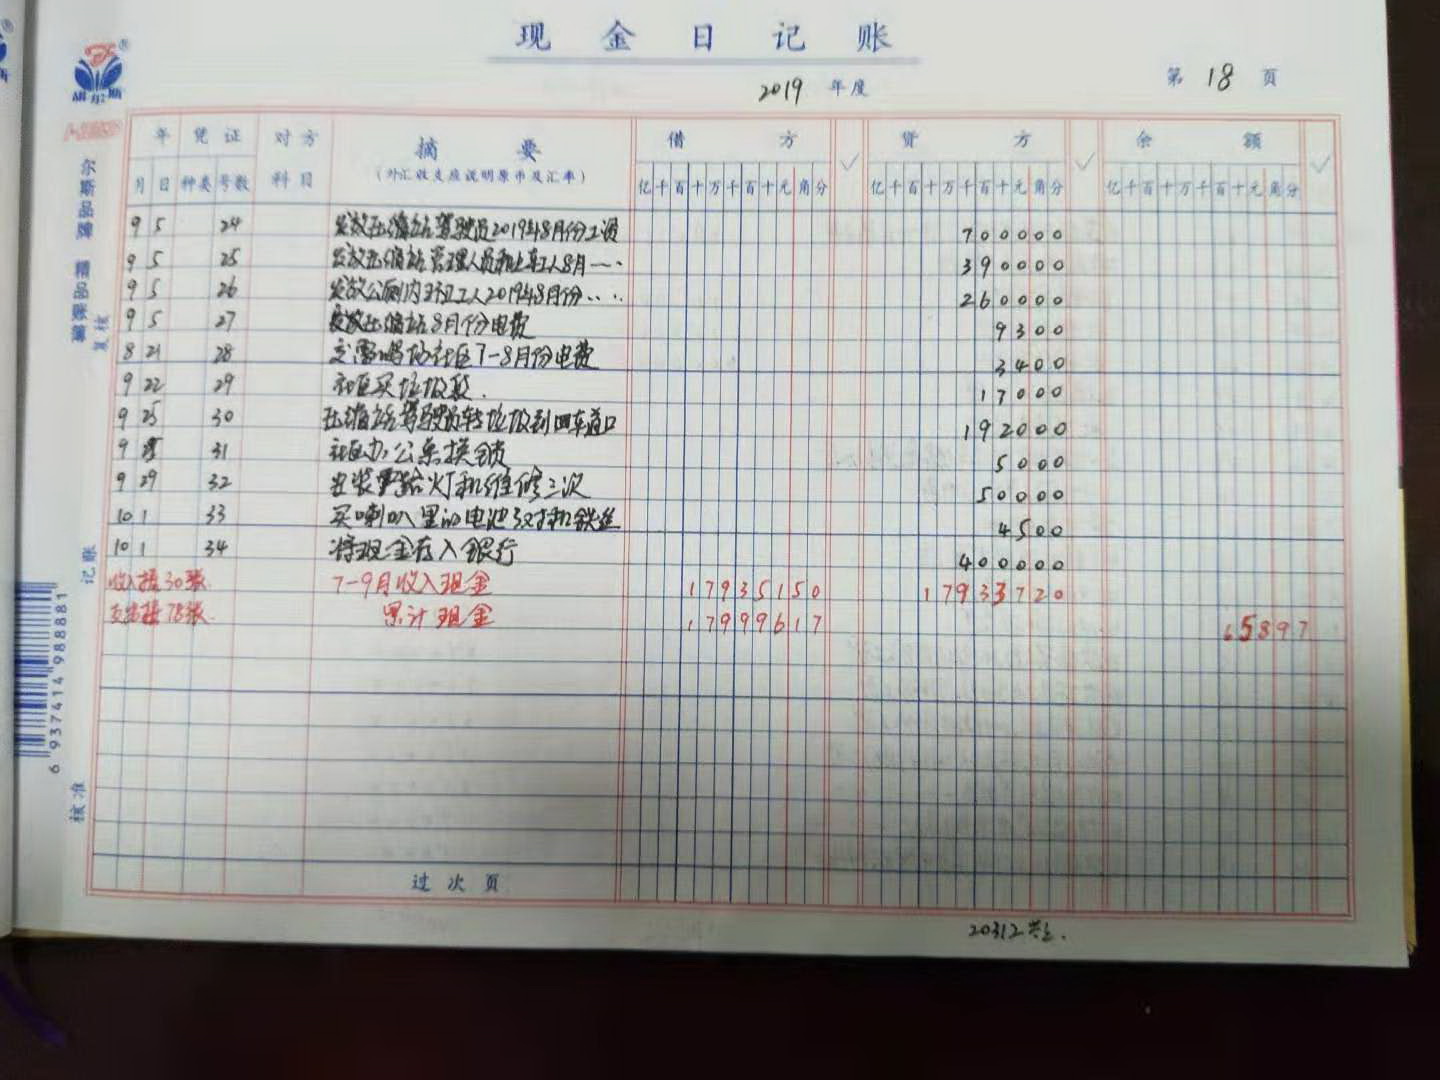 现金日记账
2019 年度
第 18 页
年 凭证 对方 摘要 借方 ✓ 贷方 ✓ 余额 ✓
月 日 种类 号数 科目 (外汇收支应说明原币及汇率) 亿千百十万千百十元角分 亿千百十万千百十元角分 亿千百十万千百十元角分
9 5 24 发放压缩站驾驶员2019年8月份工资 700000
9 5 25 发放压缩站管理人员和上车工人8月…… 390000
9 5 26 发放公厕内环卫工人2019年8月份…… 260000
9 5 27 压缩站8月份电费 9300
8 21 28 交 社区7-8月份电费 3400
9 22 29 社区买垃圾 17000
9 25 30 压缩站驾驶员转垃圾到四车道口 192000
9 31 社区办公桌换锁 5000
9 29 32 安装 灯和维修三次 50000
10 1 33 买喇叭里的电池3对和铁丝 4500
10 1 34 将现金存入银行 400000
收入据30张 7-9月收入现金 17935150 17933720
支出据78张 累计现金 17999617 65897
过次页
20312
尔斯
复核
记账
核准
6 937414 988881